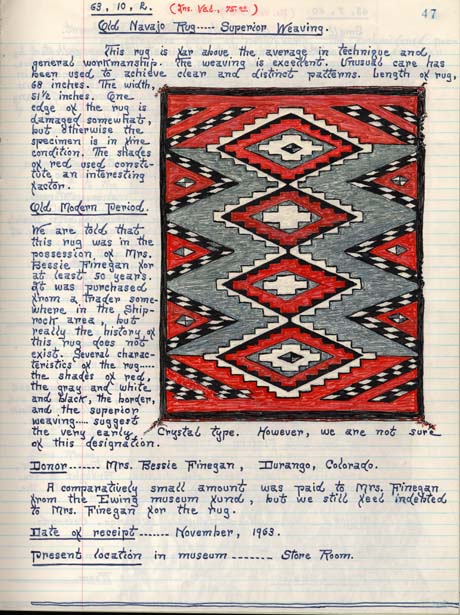 63, 10, 2. (Ins. Val., 75.00) 47
Old Navajo Rug..... Superior Weaving.
This rug is far above the average in technique and,
general workmanship. The weaving is excellent. Unusual care has
been used to achieve clear and distinct patterns. Length of rug,
68 inches. The width,
51½ inches. One
edge of the rug is
damaged somewhat,
but otherwise the
specimen is in fine
condition. The shades
of red used consti-
tute an interesting
factor.
Old Modern Period.
We are told that
this rug was in the
possession of Mrs.
Bessie Finegan for
at least 50 years.
It was purchased
from a trader some-
where in the Ship-
rock area, but
really the history of
this rug does not
exist. Several charac-
teristics of the rug....
the shades of red,
the gray and white
and black, the border,
and the superior
weaving.... suggest
the very early Crystal type. However, we are not sure
of this designation.
Donor ------- Mrs. Bessie Finegan, Durango, Colorado.
A comparatively small amount was paid to Mrs. Finegan
from the Ewing museum fund, but we still feel indebted
to Mrs. Finegan for the rug.
Date of receipt ------- November, 1963.
Present location in museum ------- Store Room.